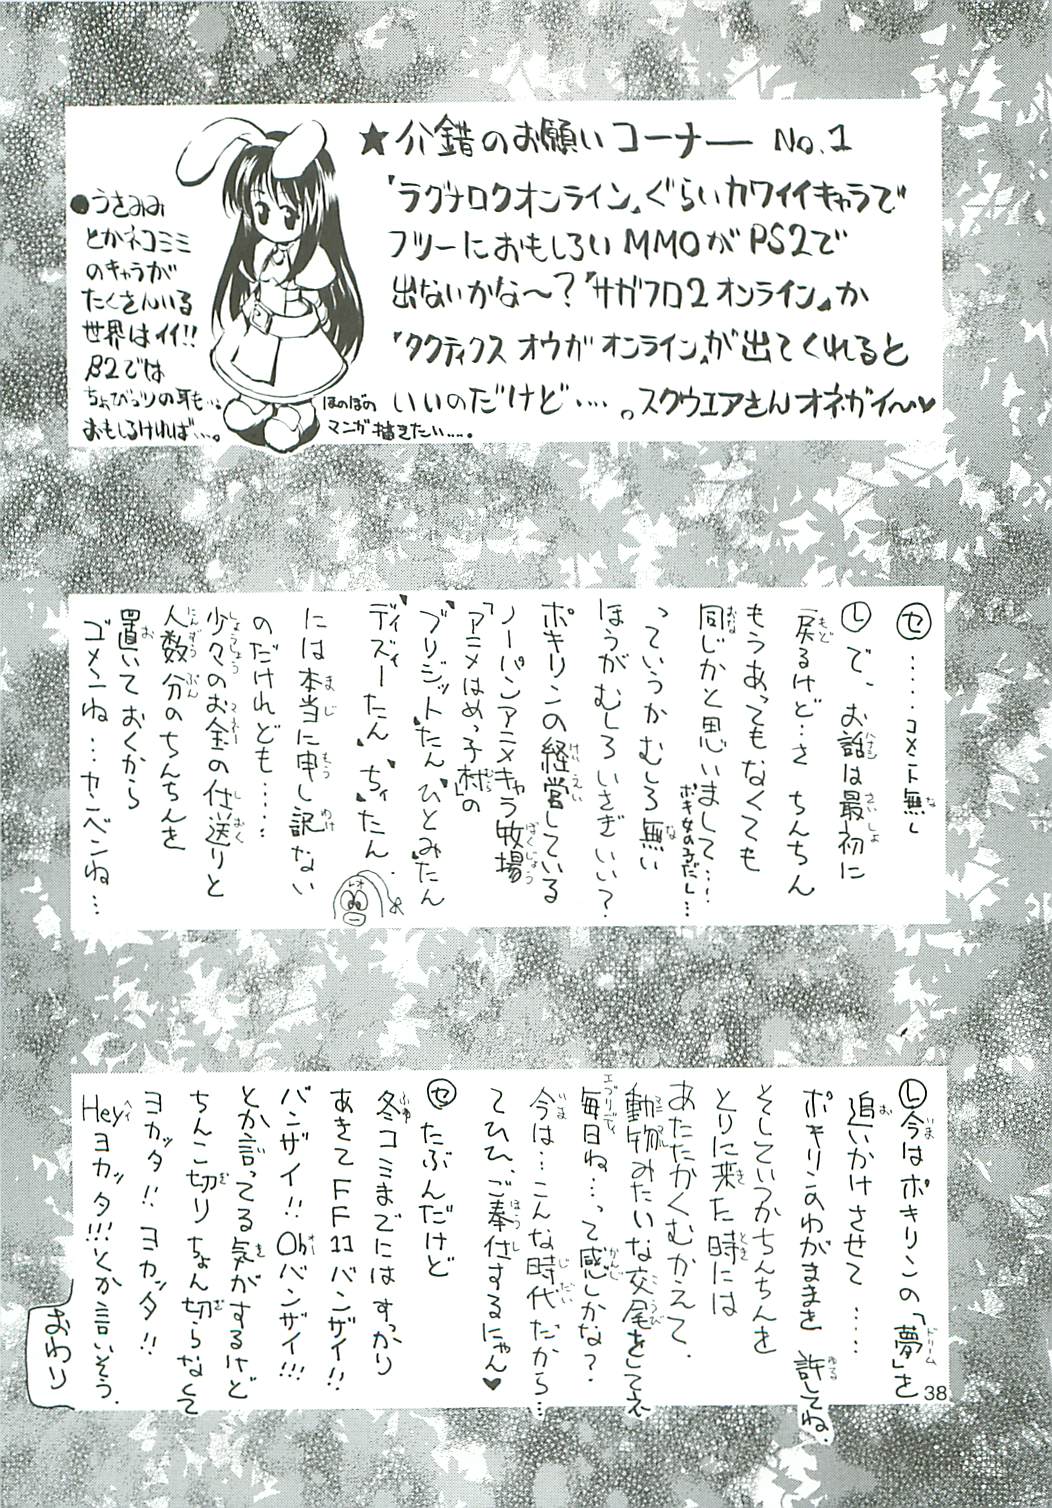 ★介錯のお願いコーナー No.1
『ラグナロクオンライン』ぐらいカワイイキャラで
フツーにおもしろいMMOがPS2で
出ないかな〜?『サガフロ2オンライン』か
『タクティクス オウガ オンライン』が出てくれると
いいのだけど・・・・。スクウエアさんオネガイ〜♥
●うさみみ
とかネコミミ
のキャラが
たくさんいる
世界はイイ!!
β2では
ちょびっツの耳も…。
おもしろければ…。
ほのぼの
マンガ描きたい……。
㋝・・・・・コメント無し
㋹で、お話は最初に
戻るけど…さ ちんちん
もうあってもなくても
同じかと思いまして・・・・
ポキ女の子だし…
っていうかむしろ無い
ほうがむしろいさぎいい?
ポキリンの経営している
ノーパンアニメキャラ牧場
「アニメはめっ子村」の
"ブリジット"たん"ひとみ"たん
"ディズィー"たん、"ちぃ"たん、
レオ
には本当に申し訳ない
のだけれども・・・・・
少々のお金の仕送りと
人数分のちんちんを
置いておくから
ゴメーンね…カンベンね…
㋹今はポキリンの「夢」を
追いかけさせて・・・・・
ポキリンのわがままを 許してね.
そしていつかちんちんを
とりに来た時には
あたたかくむかえて、
動物みたいな交尾をしてえ
毎日ね…って感じかな?
今は…こんな時代だから…
てひひ、ご奉仕するにゃん♥
㋝たぶんだけど
冬コミまでにはすっかり
あきてFF11バンザイ!!
バンザイ!!Ohバンザイ!!!
とか言ってる気がするけど
ちんこ切りちょん切らなくて
ヨカッタ!!ヨカッタ!!
Heyヨカッタ!!!とか言いそう.
おわり
38